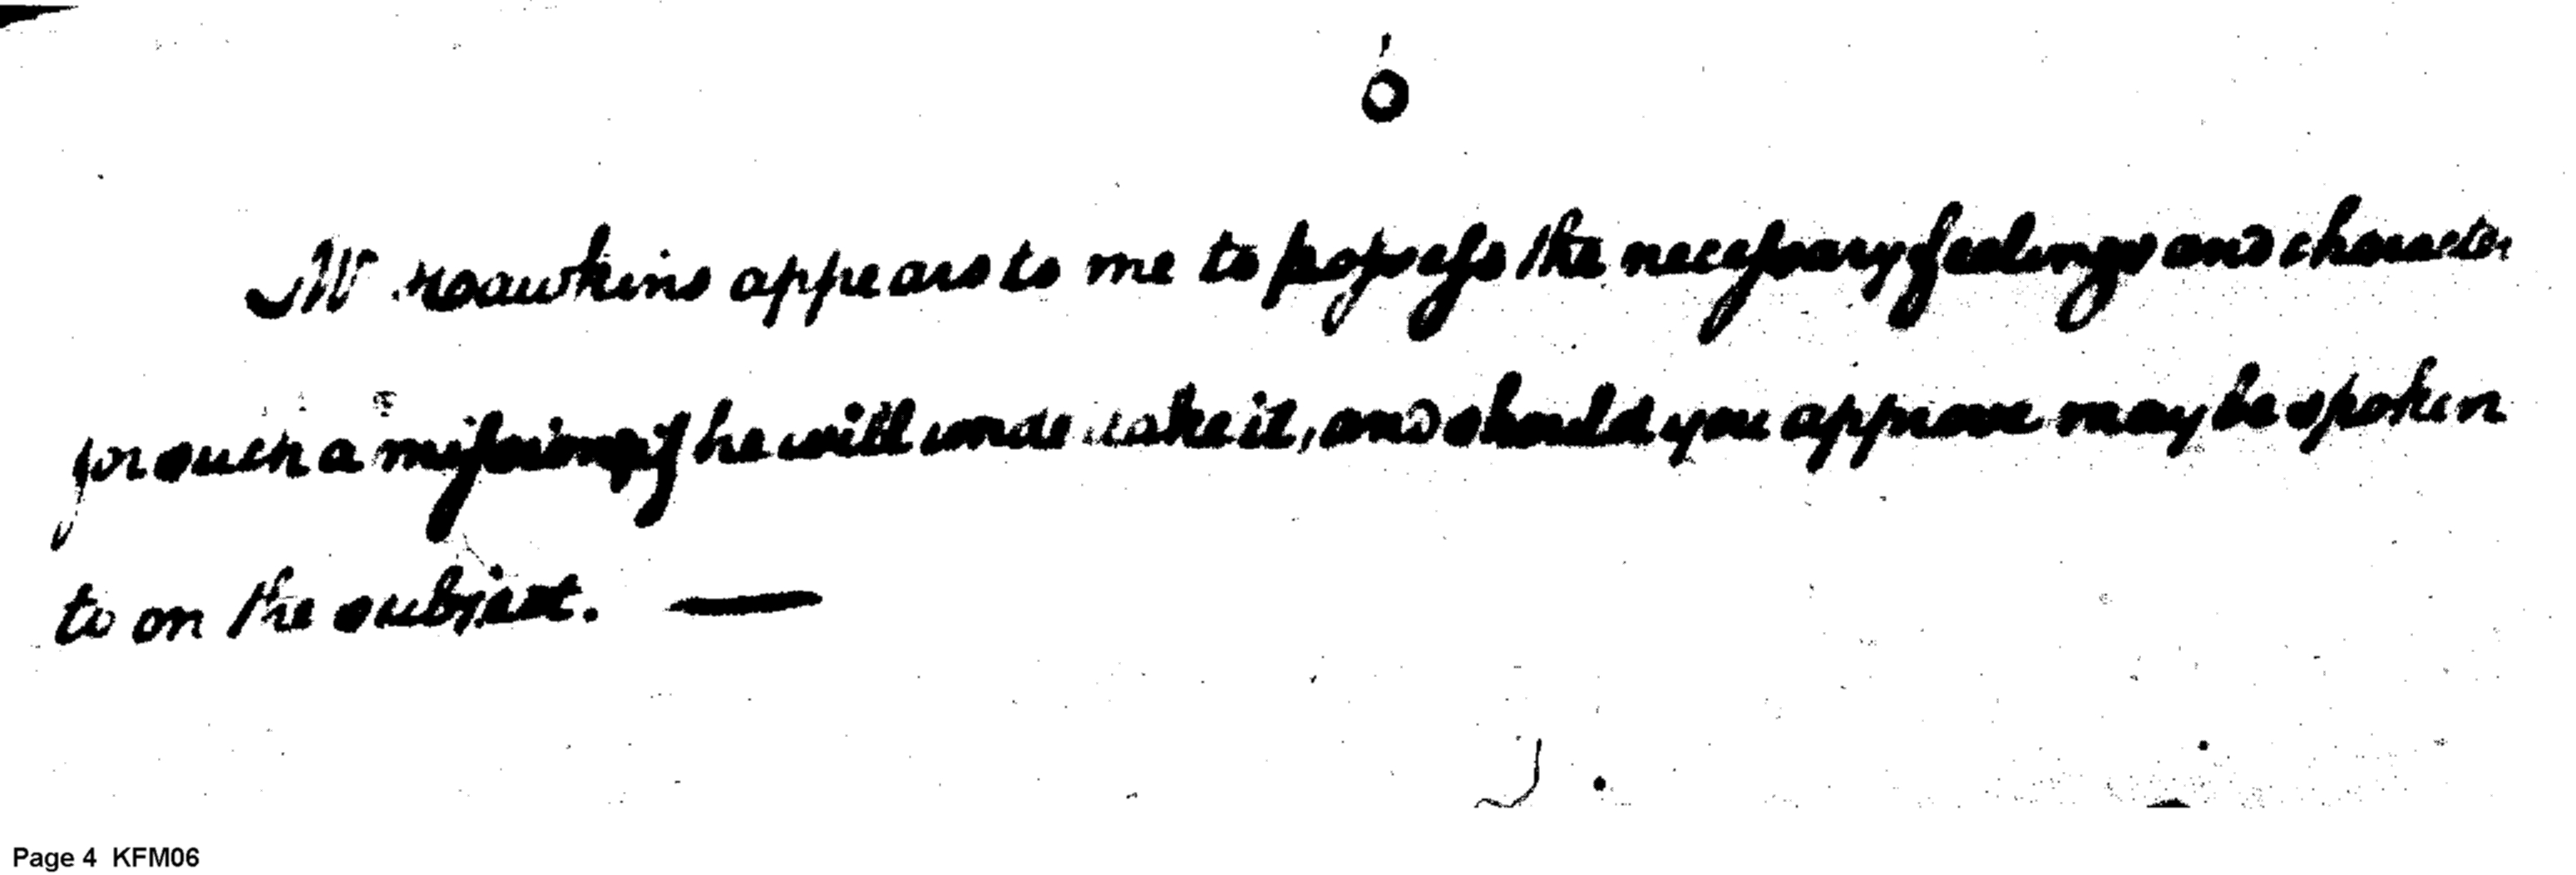 6
Mr Hawkins appears to me to possess the necessary feelings and character
for such a mission, if he will undertake it, and should you approve may be spoken
to on the subject. —
Page 4 KFM06